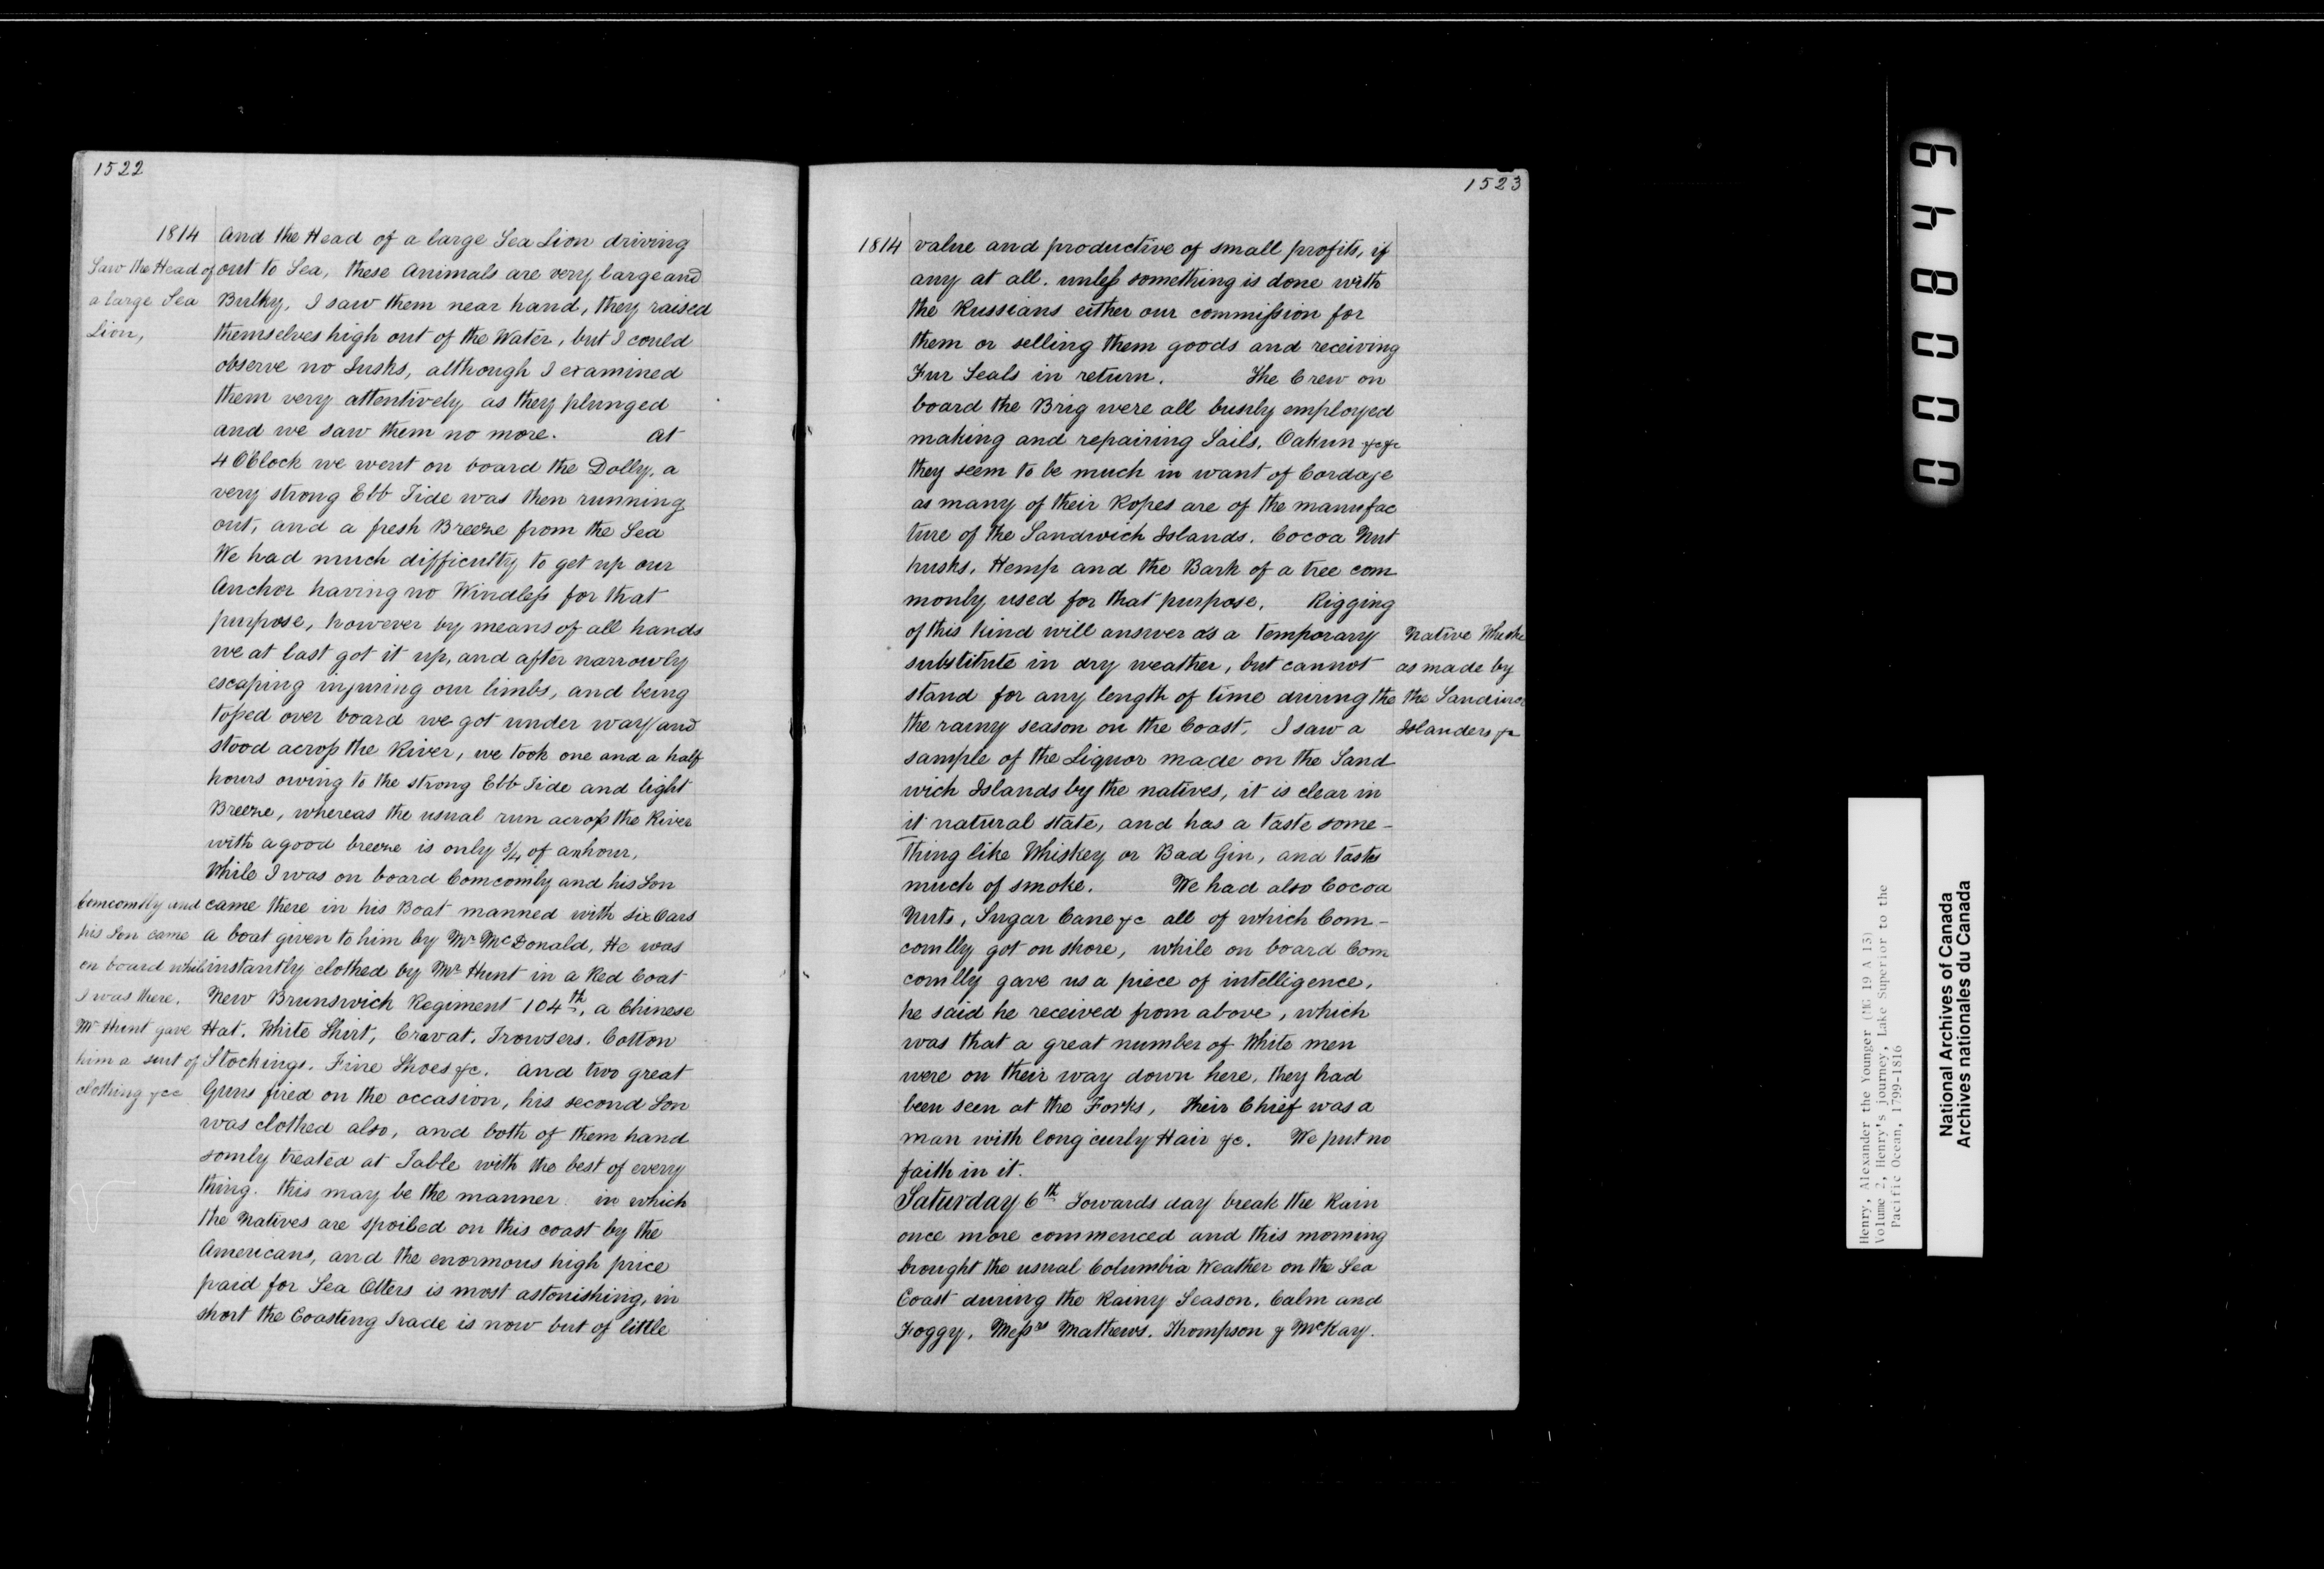 1522
1814
And the Head of a large Sea Lion driving
out to Sea, these Animals are very large and
Bulky, I saw them near hand, they raised
themselves high out of the Water, but I could
observe no Tusks, although I examined
them very attentively as they plunged
and we saw them no more. At
4 OClock we went on board the Dolly, a
very strong Ebb Tide was then running
out, and a fresh Breeze from the Sea
We had much difficulty to get up our
Anchor having no Windless for that
purpose, however by means of all hands
we at last got it up, and after narrowly
escaping injuring our limbs, and being
tossed over board we got under way and
stood across the River, we took one and a half
hours owing to the strong Ebb Tide and light
Breeze, whereas the usual run across the River
with a good breeze is only 3/4 of an hour,
While I was on board Comcomly and his Son
came there in his Boat manned with six Oars
a boat given to him by Mr McDonald, He was
instantly clothed by Mr Hunt in a Red Coat
New Brunswick Regiment 104th, a Chinese
Hat, White Shirt, Cravat, Trowsers, Cotton
Stockings, Fine Shoes &c. and two great
Guns fired on the occasion, his second Son
was clothed also, and both of them hand
somly treated at Table with the best of every
thing. this may be the manner in which
the Natives are spoiled on this coast by the
Americans, and the enormous high price
paid for Sea Otters is most astonishing, in
short the Coasting Trade is now but of little
Saw the Head of
a large Sea
Lion,
Comcomly and
his Son came
on board while
I was there.
Mr Hunt gave
him a suit of
clothing &cc
1523
1814
value and productive of small profits, if
any at all. unless something is done with
the Russians either our commission for
them or selling them goods and receiving
Fur Seals in return. The Crew on
board the Brig were all busily employed
making and repairing Sails, Oakun &c&c
they seem to be much in want of Cordage
as many of their Ropes are of the manufac
ture of the Sandwich Islands. Cocoa Nut
husks, Hemp and the Bark of a tree com
monly used for that purpose. Rigging
of this kind will answer as a temporary
substitute in dry weather, but cannot
stand for any length of time during the
the rainy season on the Coast. I saw a
sample of the Liquor made on the Sand
wich Islands by the natives, it is clear in
it natural state, and has a taste some-
thing like Whiskey or Bad Gin, and tastes
much of smoke. We had also Cocoa
Nuts, Sugar Cane &c all of which Com-
comlly got on shore, while on board Com
comlly gave us a piece of intelligence,
he said he received from above, which
was that a great number of White men
were on their way down here, they had
been seen at the Forks, their Chief was a
man with long curly Hair &c. We put no
faith in it.
Saturday 6th Towards day break the Rain
once more commenced and this morning
brought the usual Columbia Weather on the Sea
Coast during the Rainy Season, Calm and
Foggy, Messrs Mathews, Thompson & McKay.
Native
as made by
the
Islanders &c
000849
Henry, Alexander the Younger (MG 19 A 13)
Volume 2, Henry's journey, Lake Superior to the
Pacific Ocean, 1799-1816
National Archives of Canada
Archives nationales du Canada